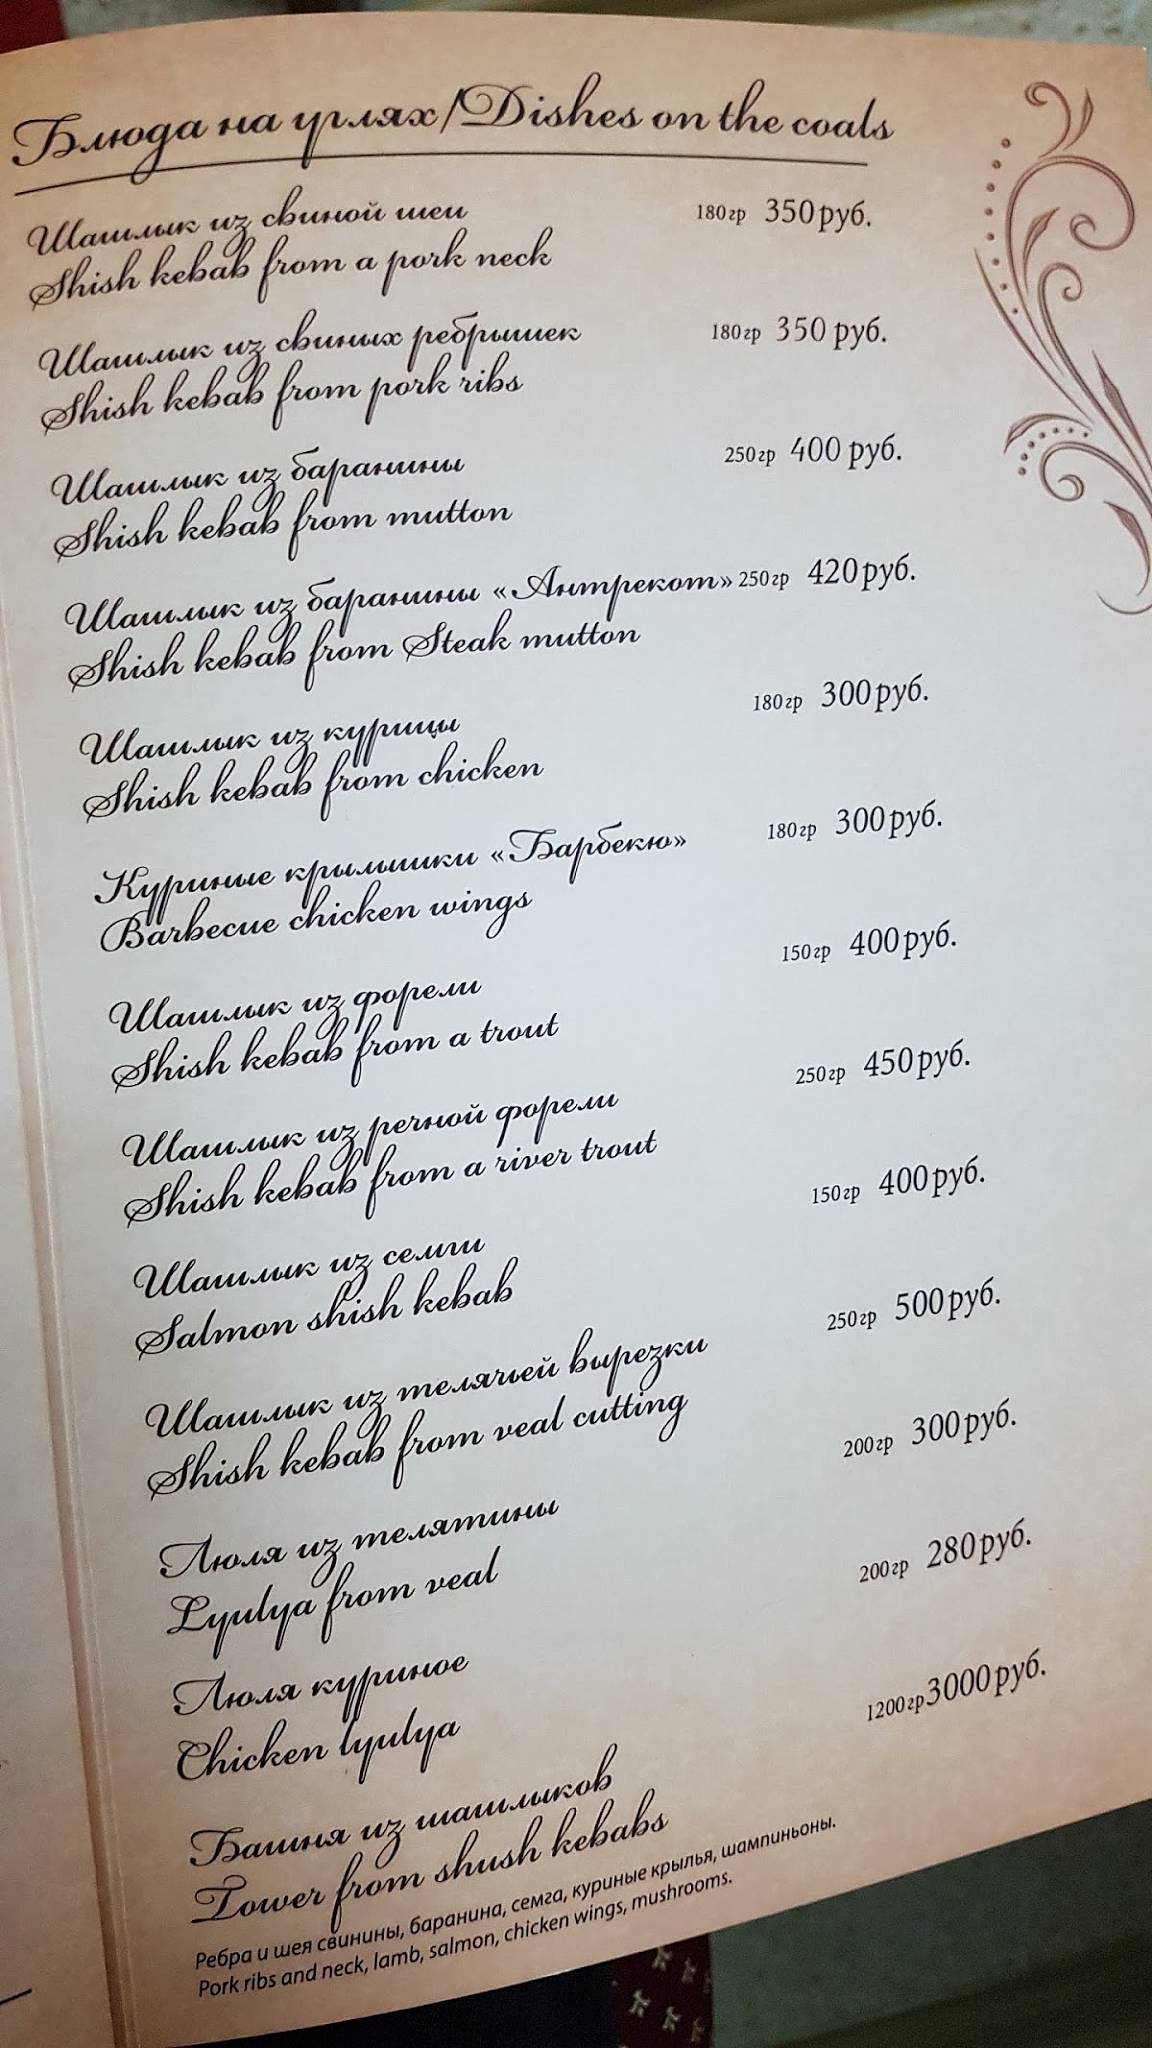 Блюда на углях/Dishes on the coals
Шашлык из свиной шеи 180гр 350руб.
Shish kebab from a pork neck
Шашлык из свиных ребрышек 180гр 350 руб.
Shish kebab from pork ribs
Шашлык из баранины 250гр 400 руб.
Shish kebab from mutton
Шашлык из баранины «Антрекот» 250гр 420руб.
Shish kebab from Steak mutton
Шашлык из курицы 180гр 300руб.
Shish kebab from chicken
Куриные крылышки «Барбекю» 180гр 300руб.
Barbecue chicken wings
Шашлык из форели 150гр 400руб.
Shish kebab from a trout
Шашлык из речной форели 250гр 450руб.
Shish kebab from a river trout
Шашлык из семги 150гр 400руб.
Salmon shish kebab
Шашлык из телячьей вырезки 250гр 500руб.
Shish kebab from veal cutting
Люля из телятины 200гр 300руб.
Lyulya from veal
Люля куриное 200гр 280руб.
Chicken lyulya
Башня из шашлыков 1200гр 3000руб.
Tower from shush kebabs
Ребра и шея свинины, баранина, семга, куриные крылья, шампиньоны.
Pork ribs and neck, lamb, salmon, chicken wings, mushrooms.